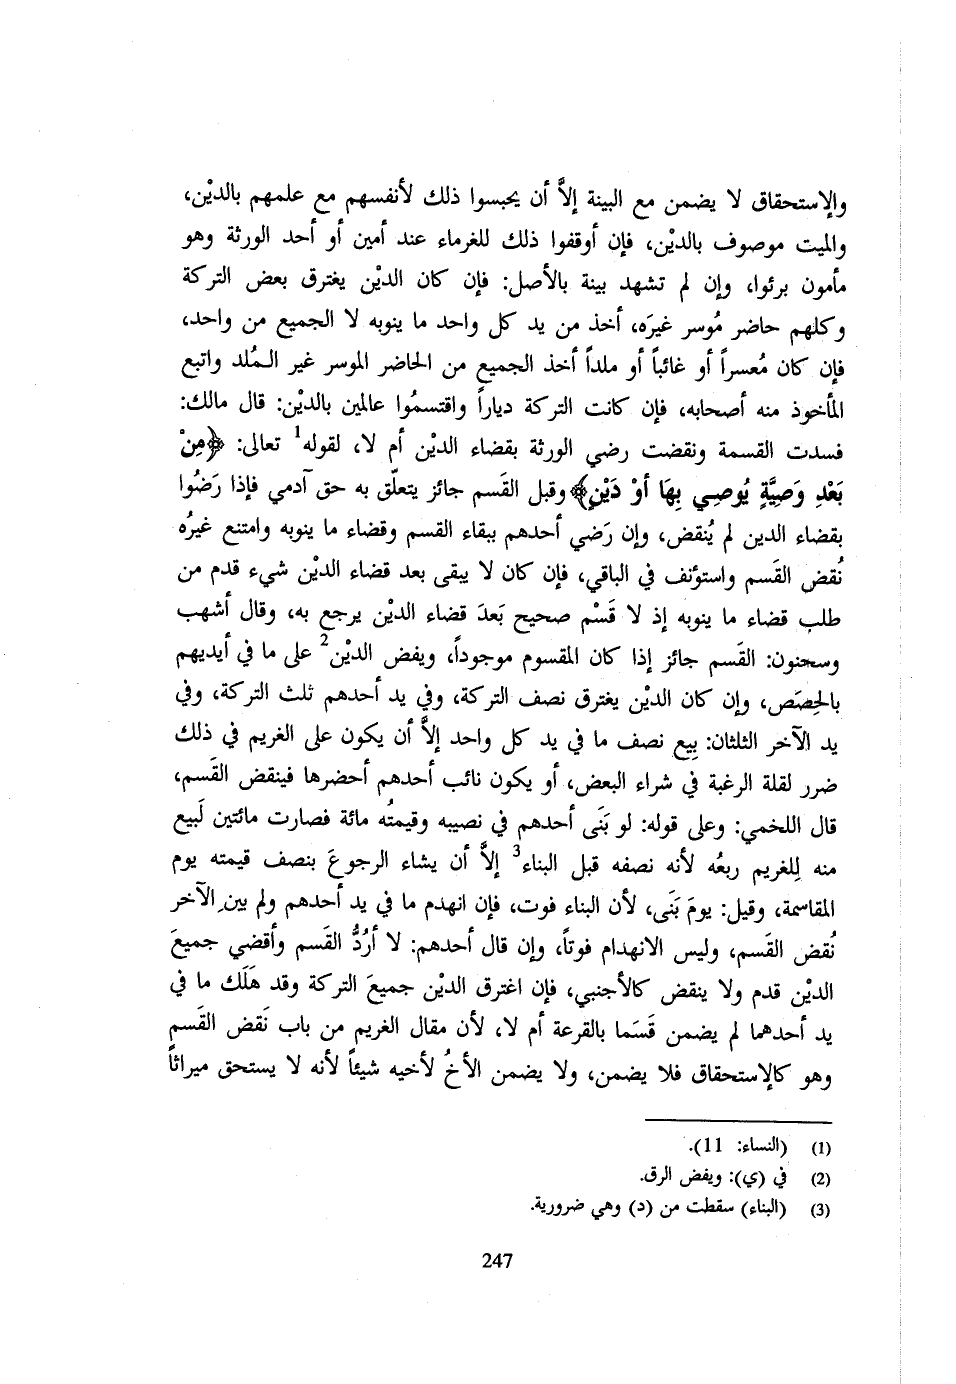 والإستحقاق لا يضمن مع البينة إلاَّ أن يحبسوا ذلك لأنفسهم مع علمهم بالديْن،
والميت موصوف بالديْن، فإن أوقفوا ذلك للغرماء عند أمين أو أحد الورثة وهو
مأمون برئوا، وإن لم تشهد بينة بالأصل: فإن كان الديْن يغترق بعض التركة
وكلهم حاضر مُوسر غيرَه، أخذ من يد كل واحد ما ينوبه لا الجميع من واحد،
فإن كان مُعسراً أو غائباً أو ملداً أخذ الجميع من الحاضر الموسر غير الـمُلد واتبع
المأخوذ منه أصحابه، فإن كانت التركة دياراً واقتسمُوا عالمين بالديْن: قال مالك:
فسدت القسمة ونقضت رضي الورثة بقضاء الديْن أم لا، لقوله1 تعالى: ﴿مِنْ
بَعْدِ وَصِيَّةٍ يُوصِي بِهَا أوْ دَيْنٍ﴾ وقبل القَسم جائز يتعلّق به حق آدمي فإذا رَضُوا
بقضاء الدين لم يُنقض، وإن رَضي أحدهم ببقاء القسم وقضاء ما ينوبه وامتنع غيرُه
نُقض القَسم واستؤنف في الباقي، فإن كان لا يبقى بعد قضاء الديْن شيء قدم من
طلب قضاء ما ينوبه إذ لا قَسْم صحيح بَعدَ قضاء الديْن يرجع به، وقال أشهب
وسحنون: القَسم جائز إذا كان المقسوم موجوداً، ويفض الديْن2 على ما في أيديهم
بالحِصَص، وإن كان الديْن يغترق نصف التركة، وفي يد أحدهم ثلث التركة، وفي
يد الآخر الثلثان: بِيع نصف ما في يد كل واحد إلاَّ أن يكون على الغريم في ذلك
ضرر لقلة الرغبة في شراء البعض، أو يكون نائب أحدهم أحضرها فينقض القَسم،
قال اللخمي: وعلى قوله: لو بَنَى أحدهم في نصيبه وقيمتُه مائة فصارت مائتين لَبيع
منه لِلغريم ربعُه لأنه نصفه قبل البناء3 إلاَّ أن يشاء الرجوعَ بنصف قيمته يوم
المقاسمة، وقيل: يومَ بَنَى، لأن البناء فوت، فإن انهدم ما في يد أحدهم ولم يبن الآخر
نُقض القَسم، وليس الانهدام فوتاً، وإن قال أحدهم: لا أرُدُّ القَسم وأقضي جميعَ
الديْن قدم ولا ينقض كالأجنبي، فإن اغترق الديْن جميعَ التركة وقد هَلَك ما في
يد أحدهما لم يضمن قَسَما بالقرعة أم لا، لأن مقال الغريم من باب نَقض القَسم
وهو كالإستحقاق فلا يضمن، ولا يضمن الأخُ لأخيه شيئاً لأنه لا يستحق ميراثاً
(1) (النساء: 11).
(2) في (ي): ويفض الرق.
(3) (البناء) سقطت من (د) وهي ضرورية.
247